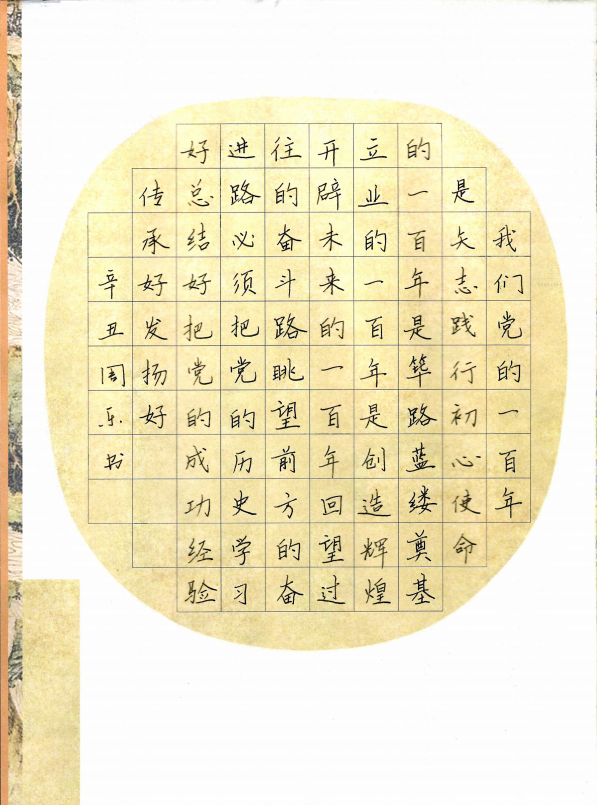 我们党的一百年
是矢志践行初心使命
的一百年是筚路蓝缕奠基
立业的一百年是创造辉煌
开辟未来的一百年回望过
往的奋斗路眺望前方的奋
进路必须把党的历史学习
好总结好把党的成功经验
传承好发扬好
辛丑周乐书